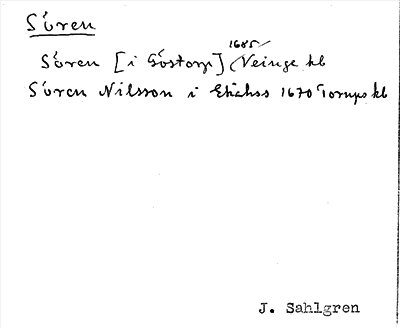 Sören
Sören [i Göstorp] 1685/ Veinge kb
Sören Nilsson i 1670 Tornps kb
J. Sahlgren